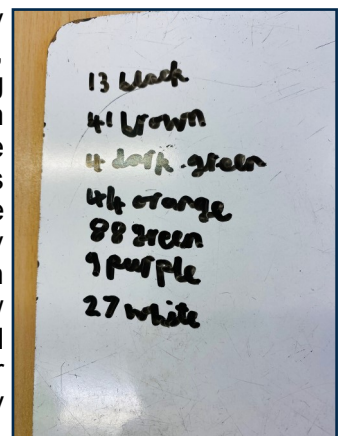 13 black
41 brown
4 dark green
44 orange
88 green
9 purple
27 white